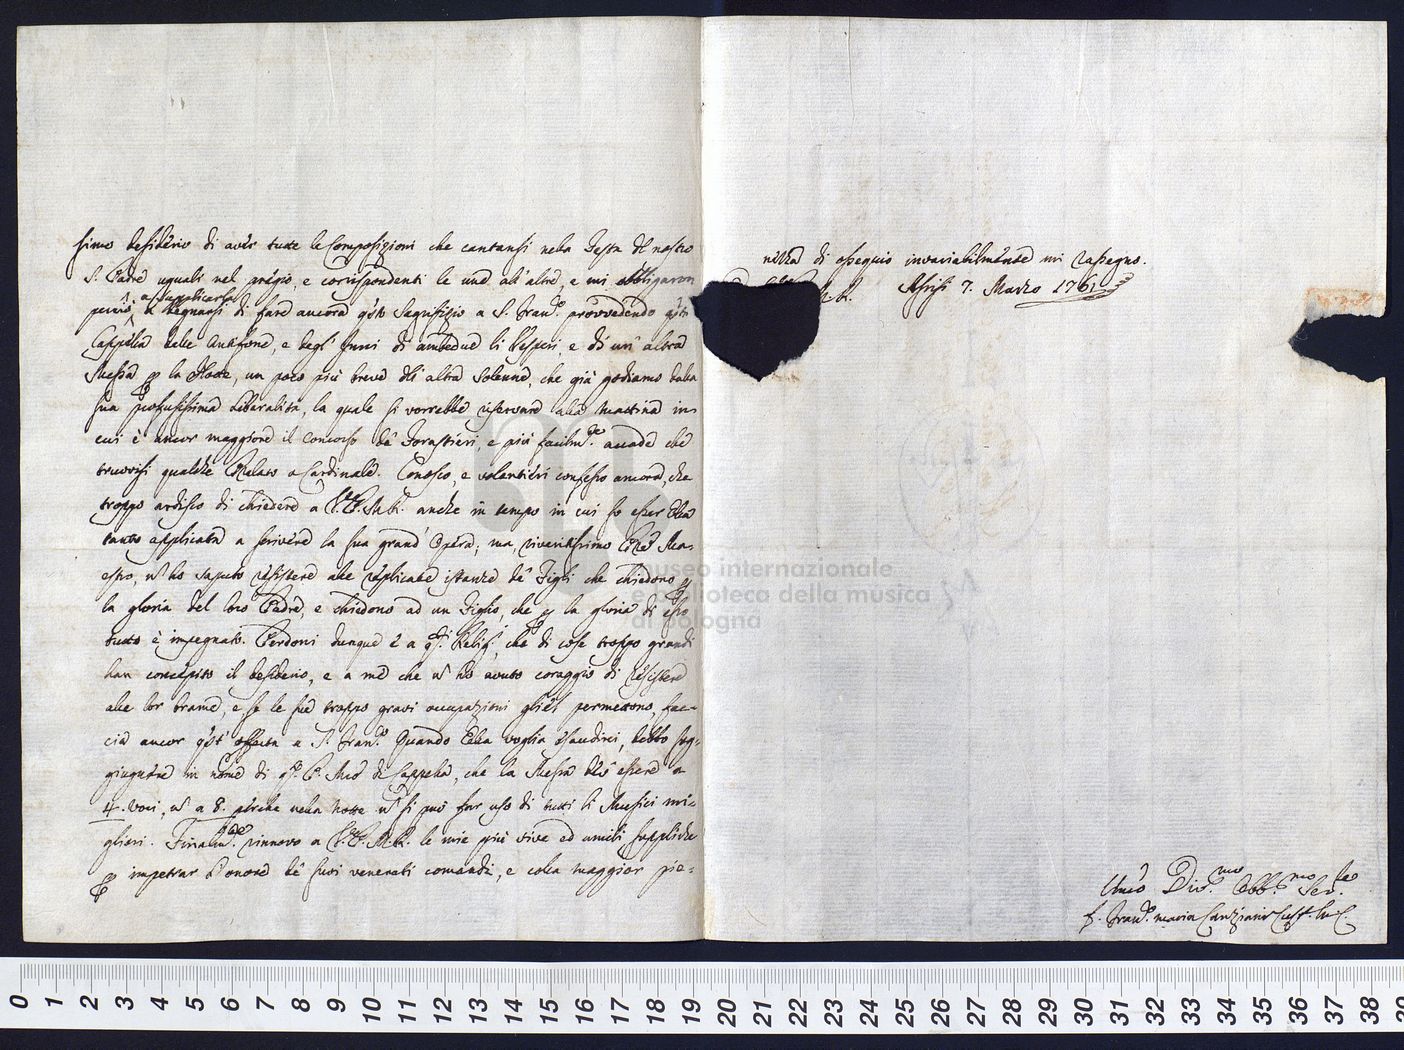 simo desiderio di aver tutte le Composizioni che cantansi nella Festa del nostro
S. Padre uguali nel pregio, e corrispondenti le une all'altre, e mi obbligaron
perciò a supplicarla a degnarsi di fare ancora q̃sto Sagrifizio a S. Fran.º provvedendo q̃sta
Cappella delle Antifone, e degl'Inni di ambedue li Vesperi, e di un'altra
Messa ꝑ la Notte, un poco più breve dell'altra solenne, che già godiamo dalla
sua profusissima liberalità, la quale si vorrebbe riservare alla mattina in
cui è ancor maggiore il concorso de' Forastieri, e più facilm.te accade che
truovisi qualche Prelato o Cardinale. Conosco, e volentieri confesso ancora, che
troppo ardisco di chiedere a V.P.M.R. anche in tempo in cui so esser Ella
tanto applicata a scrivere la sua grand'Opera; ma, riveritissimo P̃re Ma-
estro, ñ ho saputo resistere alle replicate istanze de' Figli che chiedono ꝑ
la gloria del loro Padre, e chiedono ad un Figlio, che ꝑ la gloria di esso
tutto è impegnato. Perdoni dunque e a q̃sti Religi. che di cose troppo grandi
han concepito il desiderio, e a me che ñ ho avuto coraggio di resistere
alle lor brame, e se le sue troppo gravi occupazioni gliel permettono, fac-
cia ancor q̃st'offerta a S. Fran.º Quando Ella voglia esaudirci, debbo sog-
giugnere in nome di q.sto P. Mro di Cappella, che la Messa dev'essere a
4. voci, ñ a 8. perche nella notte ñ si può far uso di tutti li Musici mi-
gliori. Finalm.te rinnovo a V.P.M.R. le mie più vive ed umili suppliche
ꝑ impetrar l'onore de' suoi venerati comandi, e colla maggior pie-
nezza di ossequio invariabilmente mi rassegno.
M.R. Assisi 7. Marzo 1761
Umo Div.mo Obb.mo Ser.re
f. Fran.º maria Canziani Cust. M.C.
museo internazionale
e biblioteca della musica
di bologna
0 1 2 3 4 5 6 7 8 9 10 11 12 13 14 15 16 17 18 19 20 21 22 23 24 25 26 27 28 29 30 31 32 33 34 35 36 37 38 39